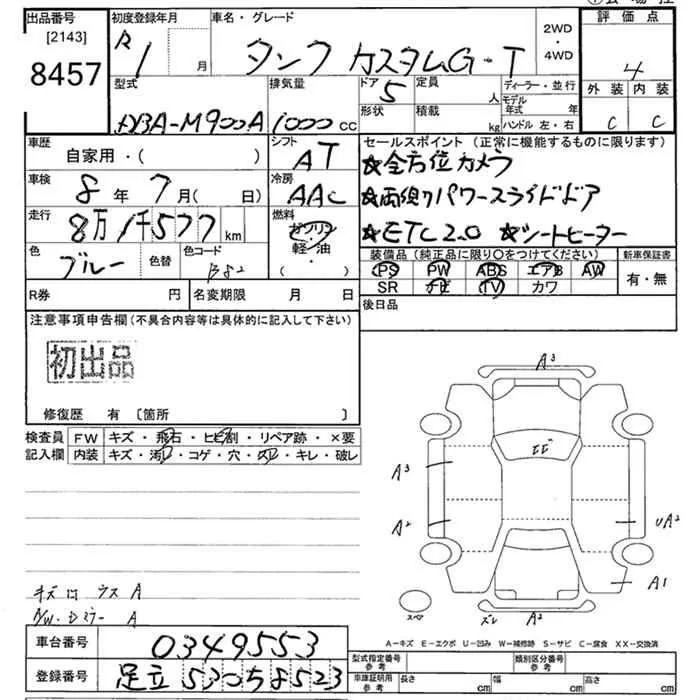 出品番号 [2143]
8457
初度登録年月 R1 月
車名・グレード タンク カスタムG-T
2WD・4WD
評価点 4
外装 C 内装 C
型式 DBA-M900A
排気量 1000 cc
ドア 5
形状
定員 人
積載 kg
ディーラー・並行
モデル年式 年
ハンドル 左・右
車歴 自家用・( )
シフト AT
車検 8年7月( 日)
冷房 AAC
走行 8万1千577 km
燃料 ガソリン・軽・油・( )
色 ブルー 色替
色コード B82
R券 円 名変期限 月 日
セールスポイント(正常に機能するものに限ります)
★全方位カメラ
★両側パワースライドドア
★ETC2.0 ★シートヒーター
装備品(純正品に限り○をつけてください) 新車保証書
PS PW ABS エアB AW 有・無
SR ナビ TV カワ
後日品
注意事項申告欄(不具合内容等は具体的に記入して下さい)
初出品
修復歴 有 〔箇所 〕
検査員 FW キズ・飛石・ヒビ割・リペア跡・×要
記入欄 内装 キズ・汚レ・コゲ・穴・スレ・キレ・破レ
A3
ヒビ
A3
A2
UA2
A1
スペア
ズレ A2
キズ ウス A
A/W・ミラー A
A-キズ E-エクボ U-凹み W-補修跡 S-サビ C-腐食 XX-交換済
車台番号 0349553
登録番号 足立 530 ち 8523
型式指定番号 参考
類別区分番号 参考
車庫証明用 参考 長さ cm 幅 cm 高さ cm